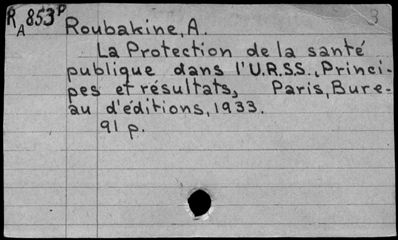 RA853P
3
Roubakine, A.
La Protection de la santé
publique dans l'U.R.S.S., Princi-
pes et résultats, Paris, Bure-
au d'éditions, 1933.
91 p.